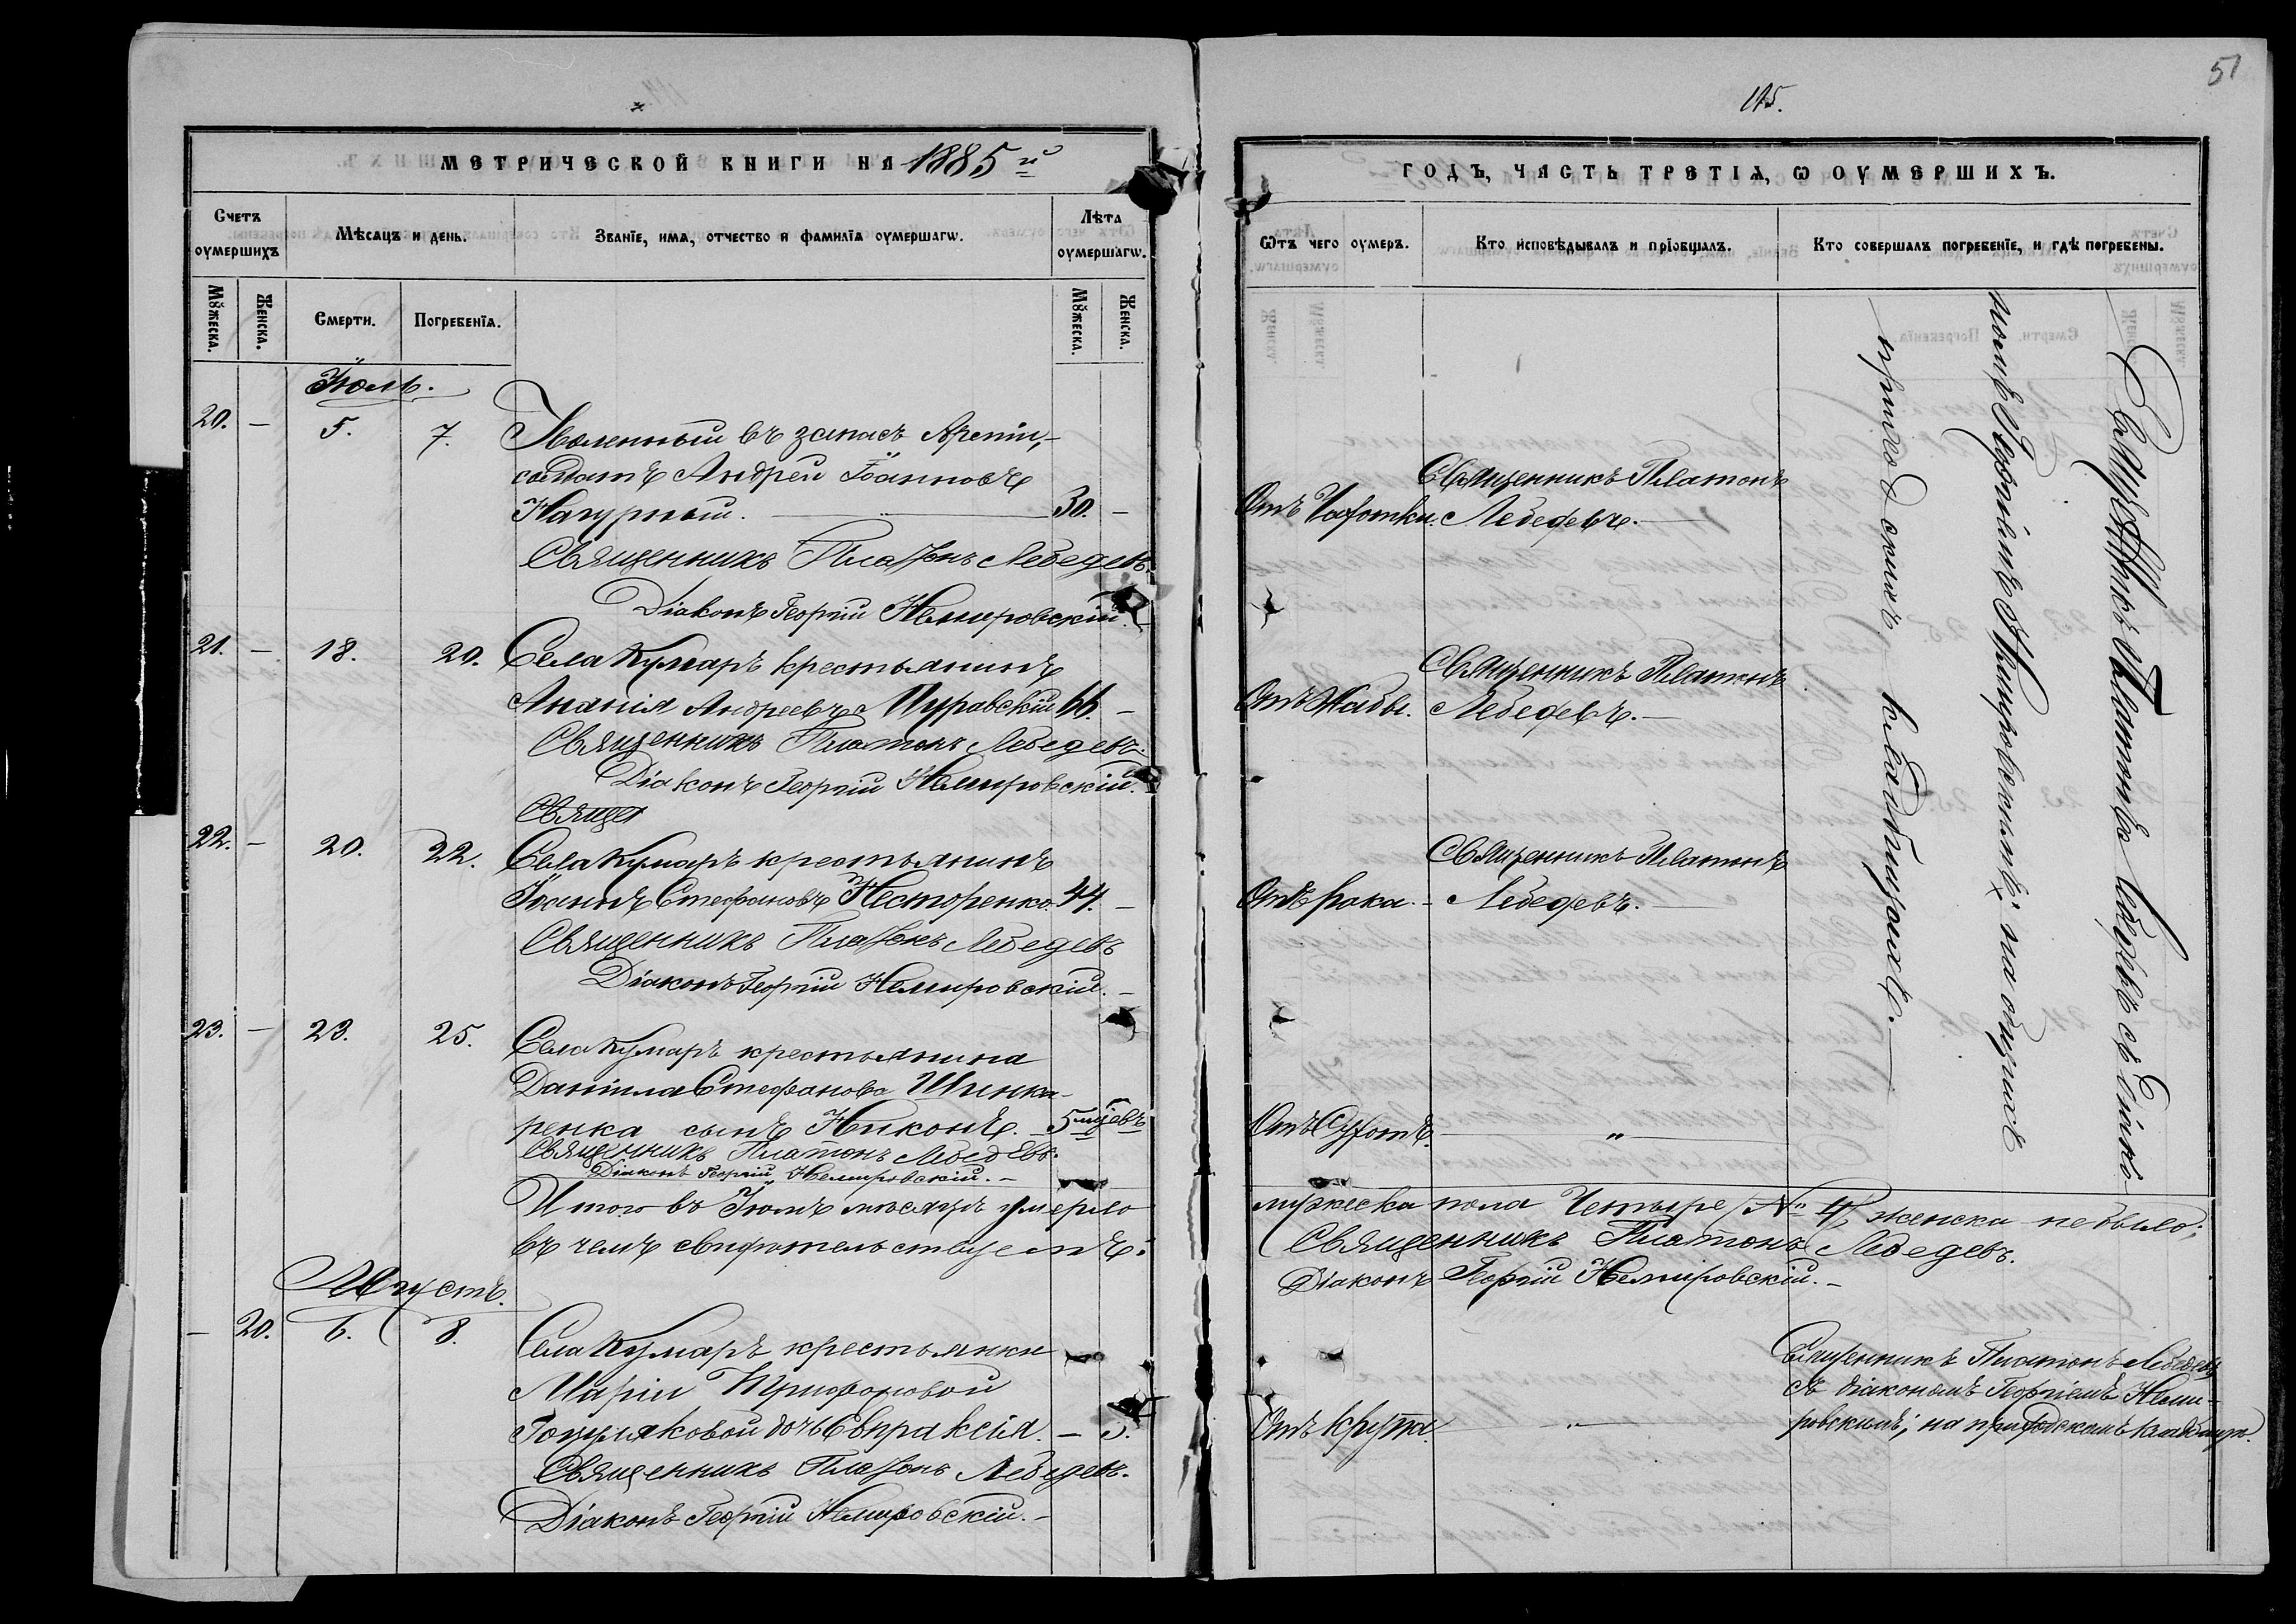 115.
51
МЕТРИЧЕСКОЙ КНИГИ НА 1885 й
ГОДЪ, ЧАСТЬ ТРЕТІѦ, Ѡ ОУМЕРШИХЪ.
Счетъ оумершихъ
Мѣсяцъ и день.
Званіе, имѧ, отчество и фамиліѧ оумершагѡ.
Лѣта оумершагѡ.
Мꙋжеска.
Женска.
Смерти.
Погребеніѧ.
Мꙋжеска.
Женска.
Ѿтъ чего оумеръ.
Кто исповѣдывалъ и пріобщалъ.
Кто совершалъ погребеніе, и гдѣ погребены.
Іюль.
20. – 5. 7. Уволенный въ запасъ Арміи,
солдатъ Андрей Іоанновъ
Нагурный. 30. –
Отъ Чахотки.
Священникъ Платонъ
Лебедевъ.
Священникъ Платонъ Лебедевъ.
Діаконъ Георгій Немировскій.
21. – 18. 20. Села Кумаръ крестьянинъ
Ананія Андреевъ Муравскій 66. –
Отъ Жабы.
Священникъ Платонъ
Лебедевъ.
Священникъ Платонъ Лебедевъ.
Діаконъ Георгій Немировскій.
Свящ
22. – 20. 22. Села Кумаръ крестьянинъ
Іоаннъ Стефановъ Несторенко. 44. –
Отъ рака.
Священникъ Платонъ
Лебедевъ.
Священникъ Платонъ Лебедевъ
Діаконъ Георгій Немировскій.
23. – 23. 25. Села Кумаръ крестьянина
Даніила Стефанова Шинка-
ренка сынъ Никонъ. 5 мцевъ
Отъ Сухотъ. "
Священникъ Платонъ Лебедевъ.
Діаконъ Георгій Немировскій.
Священникъ Платонъ Лебедевъ съ діако-
номъ Георгіемъ Немировскимъ; на общихъ
приходскихъ кладбищахъ.
Итого въ Іюлѣ мѣсяцѣ умерло мужеска пола Четыре /№ 4/ женска не было;
въ чемъ свидѣтельствуемъ:
Священникъ Платонъ Лебедевъ.
Діаконъ Георгій Немировскій.
Августъ.
– 20. 6. 8. Села Кумаръ крестьянки
Маріи Трифоновой
дочь Евпраксія. – 3.
Отъ крупа. "
Священникъ Платонъ Лебедевъ
съ діакономъ Георгіемъ Неми-
ровскимъ; на приходскомъ кладбищѣ.
Священникъ Платонъ Лебедевъ.
Діаконъ Георгій Немировскій.